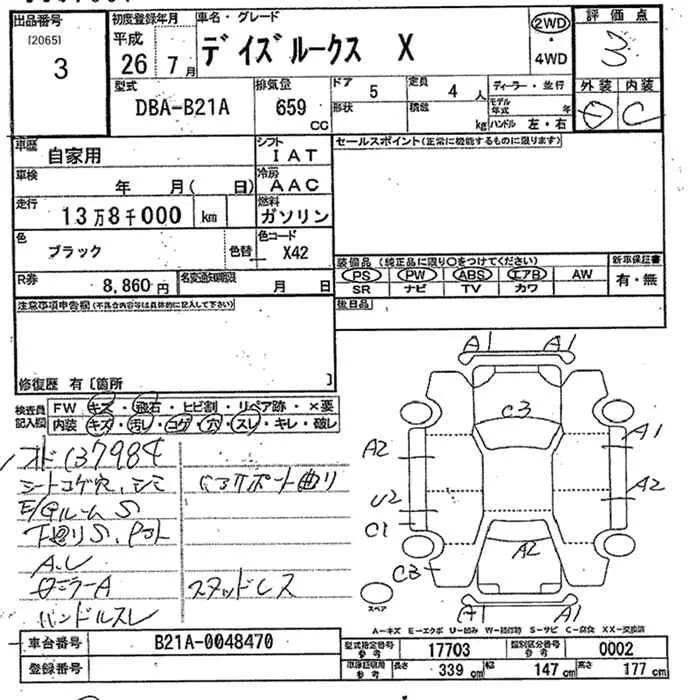 出品番号 初度登録年月 車名・グレード 2WD 評価点
[2065] 平成 デイズルークス X ・ 3
3 26 7月 4WD
型式 排気量 ドア 5 定員 4人 ディーラー・並行 外装 内装
DBA-B21A 659 CC 形状 積載 kg モデル年式 年 D C
ハンドル 左・右
車歴 自家用 シフト IAT セールスポイント(正常に機能するものに限ります)
車検 年 月( 日) 冷房 AAC
走行 13万8千000 km 燃料 ガソリン
色 ブラック 色替 色コード X42
装備品(純正品に限り○をつけてください) 新車保証書
R券 8,860円 名変通知期限 月 日 PS PW ABS エアB AW 有・無
SR ナビ TV カワ
注意事項申告欄(不具合内容等は具体的に記入して下さい) 後日品
修復歴 有〔箇所 〕
検査員記入欄 FW キズ・飛石・ヒビ割・リペア跡・×要
内装 キズ・汚レ・コゲ・穴・スレ・キレ・破レ
メド 137984
シートコゲ穴、シミ コアサポート曲り
E/GルームS
下廻りS、
スタッドレス
ハンドルスレ
A1 A1
C3
A2 A1
U2 A2
C1
A2
C3
A1 A1
スペア
A-キズ E-エクボ U-凹み W-補修跡 S-サビ C-腐食 XX-交換済
車台番号 B21A-0048470 型式指定番号 参考 17703 類別区分番号 参考 0002
登録番号 車庫証明用 参考 長さ 339cm 幅 147cm 高さ 177cm